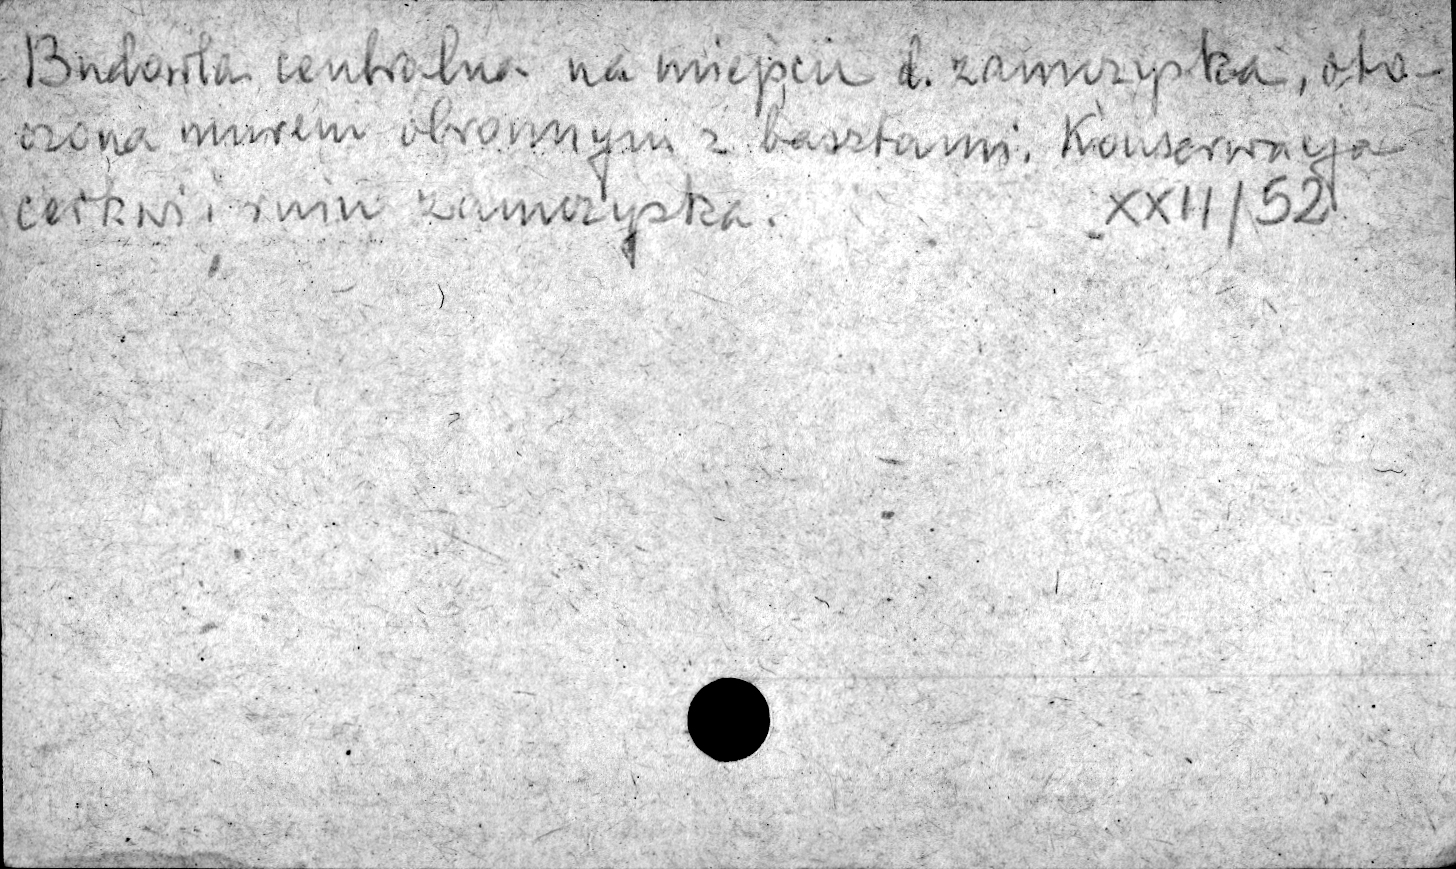 Budowla centralna na miejscu d. zamczyska, oto-
czona murem obronnym z basztami. Konserwacja
cerkwi i ruin zamczyska. XXII/52